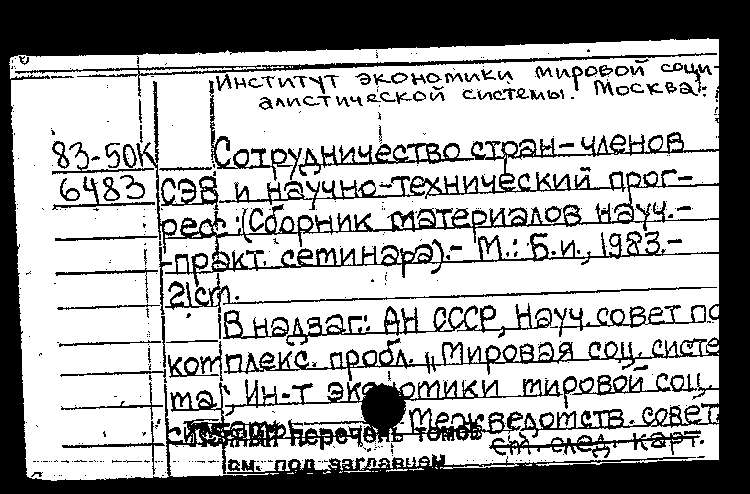 Институт экономики мировой соци-
алистической системы. Москва.
83-50К Сотрудничество стран-членов
6483 СЭВ и научно-технический прог-
ресс :(Сборник материалов науч.-
-практ. семинара).- М.: Б.и., 1983.-
21cm.
В надзаг.: АН СССР, Науч. совет по
комплекс. пробл. "Мировая соц. систе
ма", Ин-т экономики мировой соц.
системы, Межведомств. совет
Полный перечень томов см. след. карт.
см. под заглавием